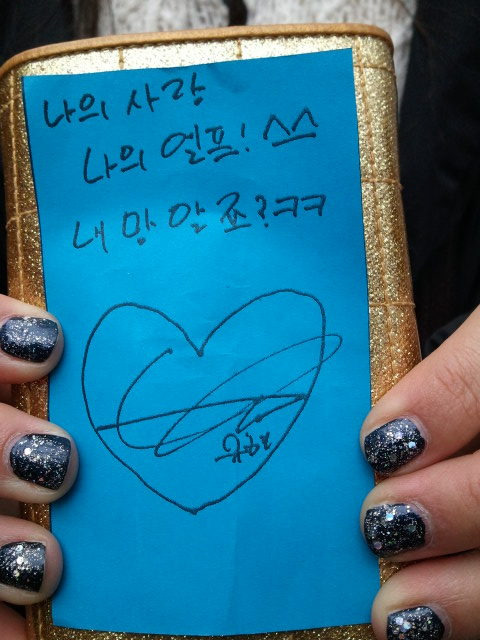 나의 사랑
나의 엘프! ^^
내 맘 알죠?ㅋㅋ